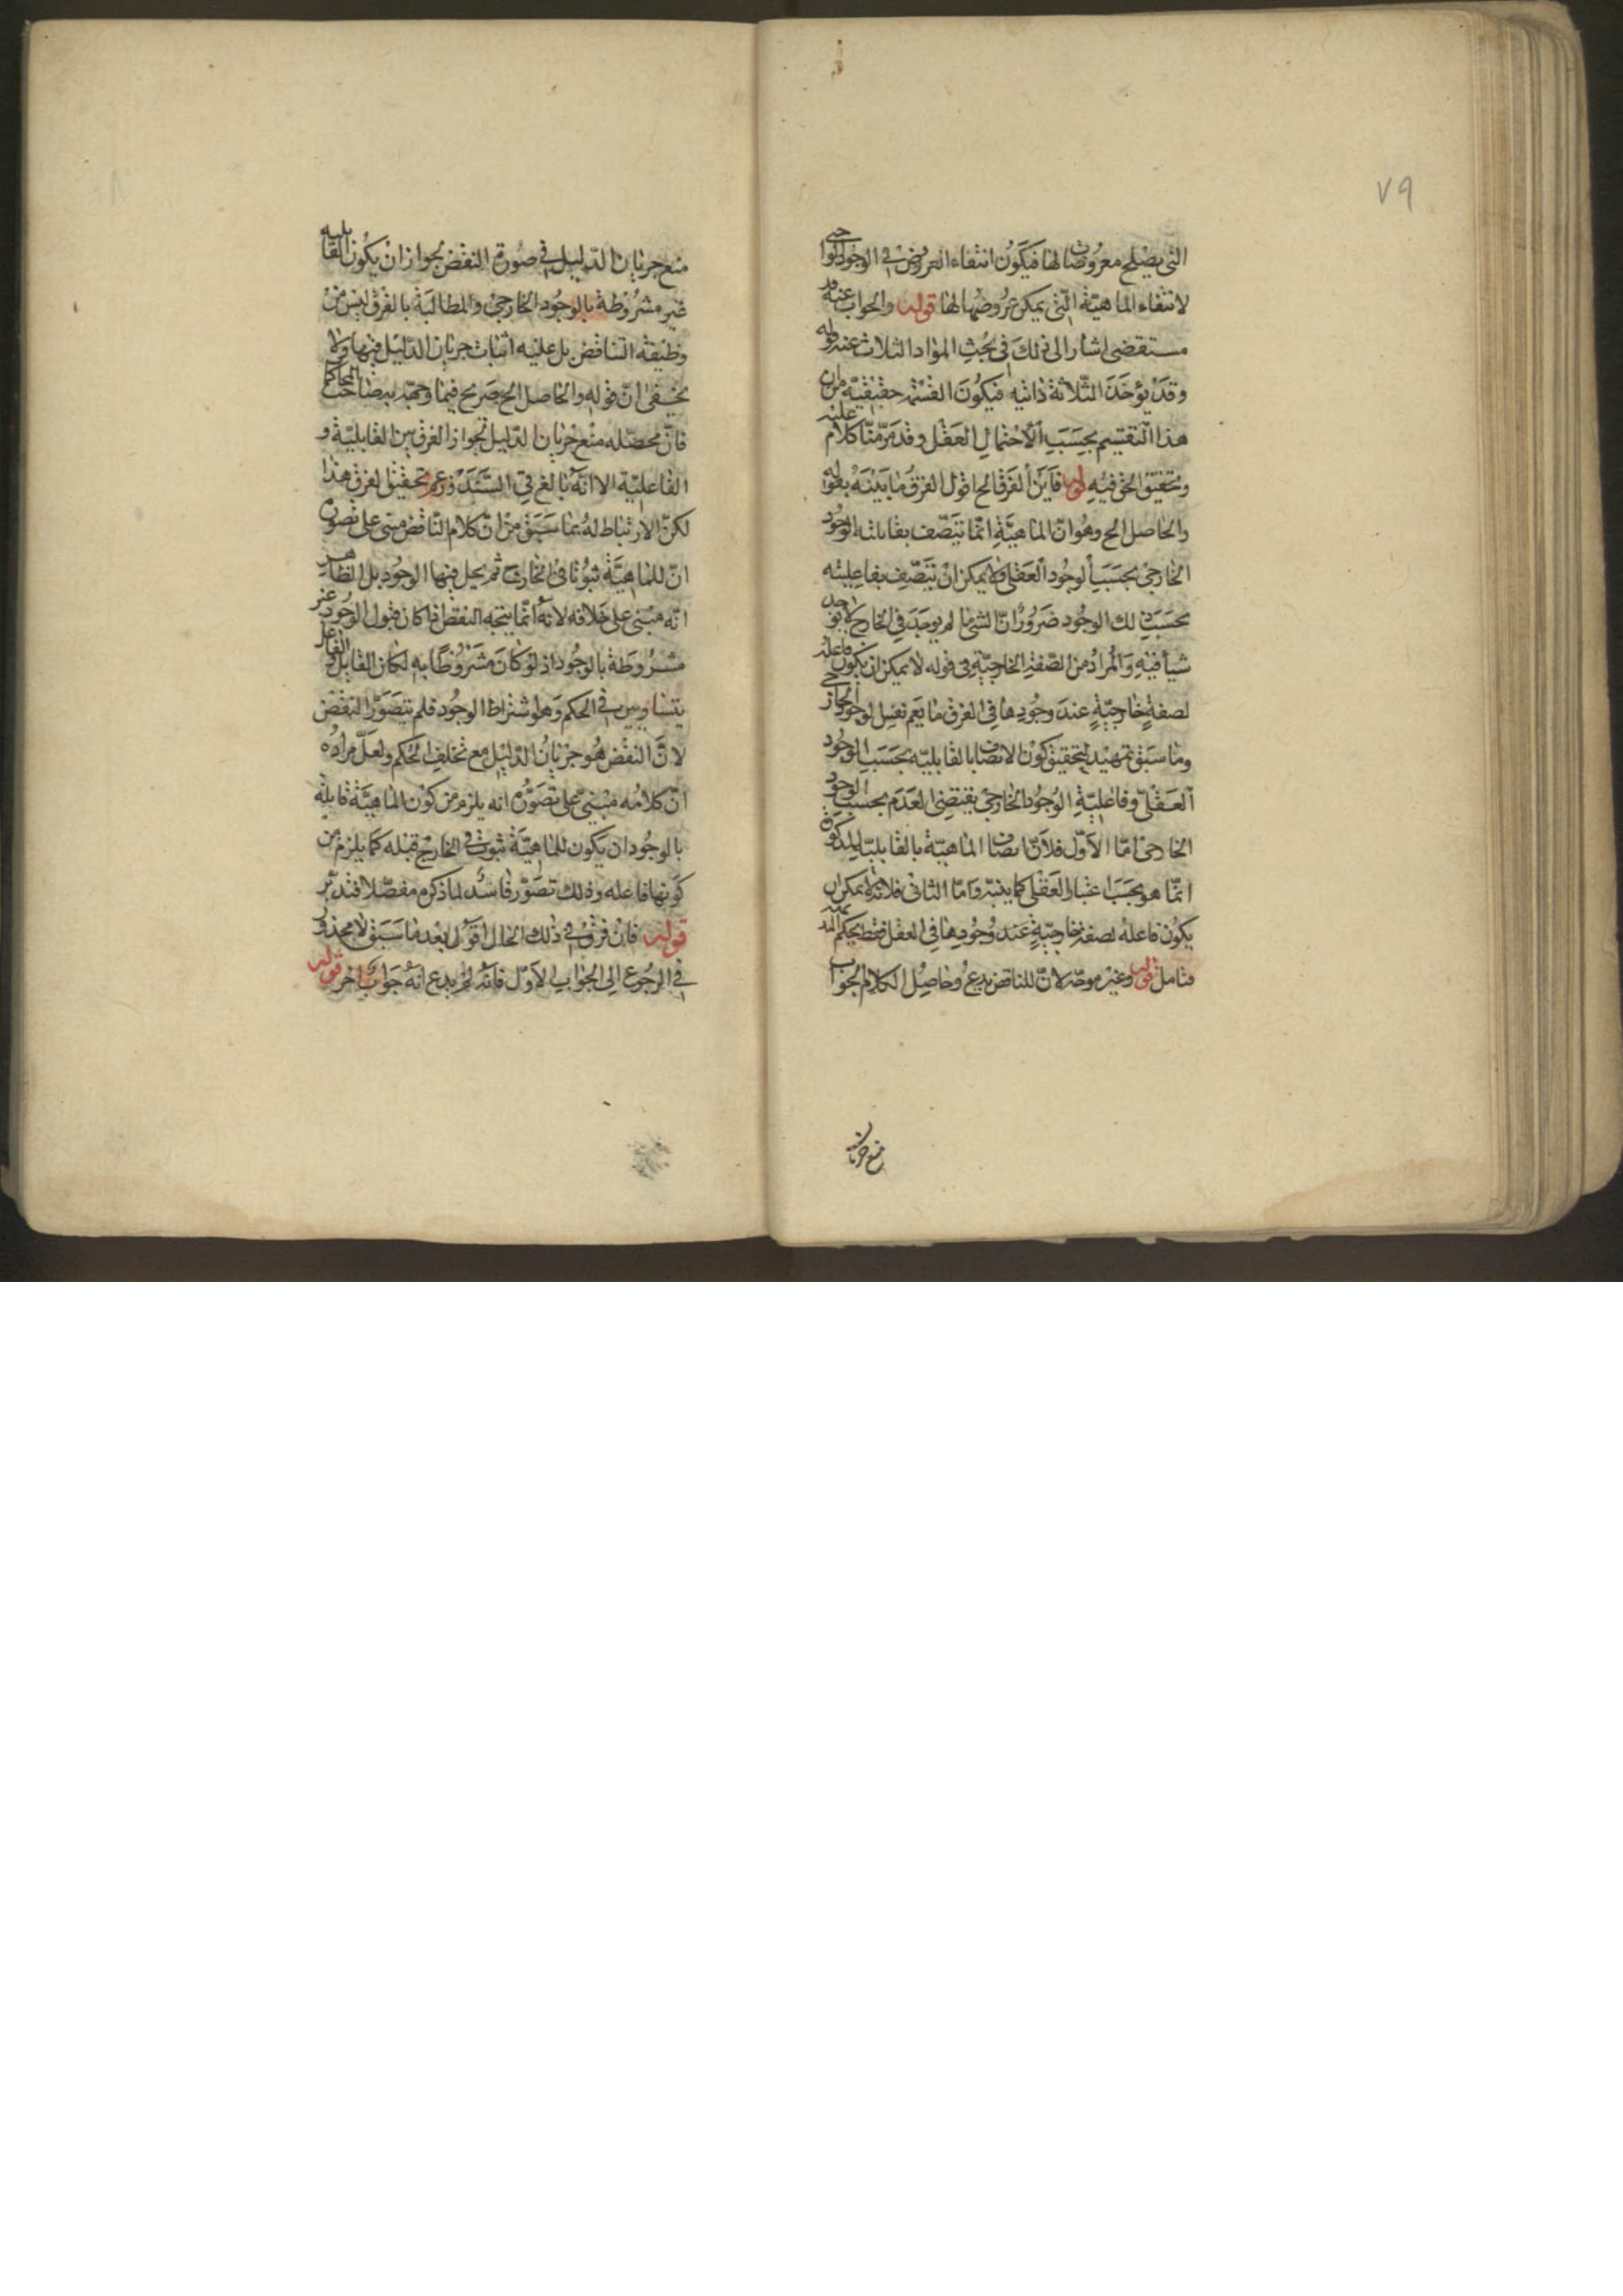 ٧٩
التى يصلح معروضا لها فيكون انتفاء العروض فى الوجود الخارجى
لانتفاء الماهية التى يمكن عروضها لها قوله والجواب عنه قد
مستقضى اشار الى ذلك فى بحث المواد الثلاث عند قوله
وقد يؤخذ الثلاثة ذاتيه فيكون القسمة حقيقية من ان
هذا التقسيم بحسب الاحتمال العقل وقد مر منا كلام عليه
وتحقيق الحق فيه قوله فاين الفرق الح اقول الفرق ما بينه بقوله
والحاصل الح وهو ان الماهية انما تتصف بقابلية الوجود
الخارجى بحسب الوجود العقلى ولا يمكن ان تتصف بفاعليته
بحسب ذلك الوجود ضرورة ان الشئ ما لم يوجد فى الخارج لا يوجد
شيأ فيه والمراد من الصفة الخارجية فى قوله لا يمكن ان يكون فاعلة
لصفة خارجية عند وجودها فى العرف ما يعم نفس الوجود الخارجى
وما سبق تمهيد لتحقيق كون الاتصاف بالقابلية بحسب الوجود
العقلى وفاعلية الوجود الخارجى يقتضى التقدم بحسب الوجود
الخارجى اما الاول فلان اتصاف الماهية بالقابلية المذكورة
انما هو بحسب اعتبار العقلى كما بينه واما الثانى فلانه لا يمكن ان
يكون فاعلة لصفة خارجية عند وجودها فى العقل فقط بحكم البديهة
فتامل قوله وغير موجه لان للناقض يدعى وحاصل الكلام الجواب
منع جريان
منع جريان الدليل فى صورة النقض بجواز ان يكون القابلية
غير مشروطة بالوجود الخارجى والمطالبة بالفرق ليس من
وظيفة الناقض بل عليه اثبات جريان الدليل فيها ولا
يخفى ان قوله والحاصل الح صريح فيما وجهه به صاحب المحاكمات
فان محصله منع جريان الدليل بجواز الفرق بين القابلية و
الفاعلية الا انه بالغ فى السند وزعم تحقيق الفرق هذا
لكن لا ارتباط له بما سبق من ان كلام الناقض مبنى على تصور
ان للماهية ثبوتا فى الخارج ثم يحل فيها الوجود بل الظاهر
انه مبنى على خلافه لانه انما يتجه النقض اذا كان قبول الوجود غير
مشروطة بالوجود اذ لو كان مشروطا به لكان القابل والفاعل
يتساويين فى الحكم وهو اشتراط الوجود فلم يتصور النقض
لان النقض هو جريان الدليل مع تخلف الحكم ولعل مراده
ان كلامه مبنى على تصور انه يلزم من كون الماهية قابلة
بالوجود ان يكون للماهية ثبوت فى الخارج قبله كما يلزم من
كونها فاعله وذلك تصور فاسد لما ذكره مفصلا فتدبر
قوله فان فرق فى ذلك الحال اقول بعد ما سبق لا محذور
فى الرجوع الى الجواب الاول فانه لم يدع انه جواب اخر قوله